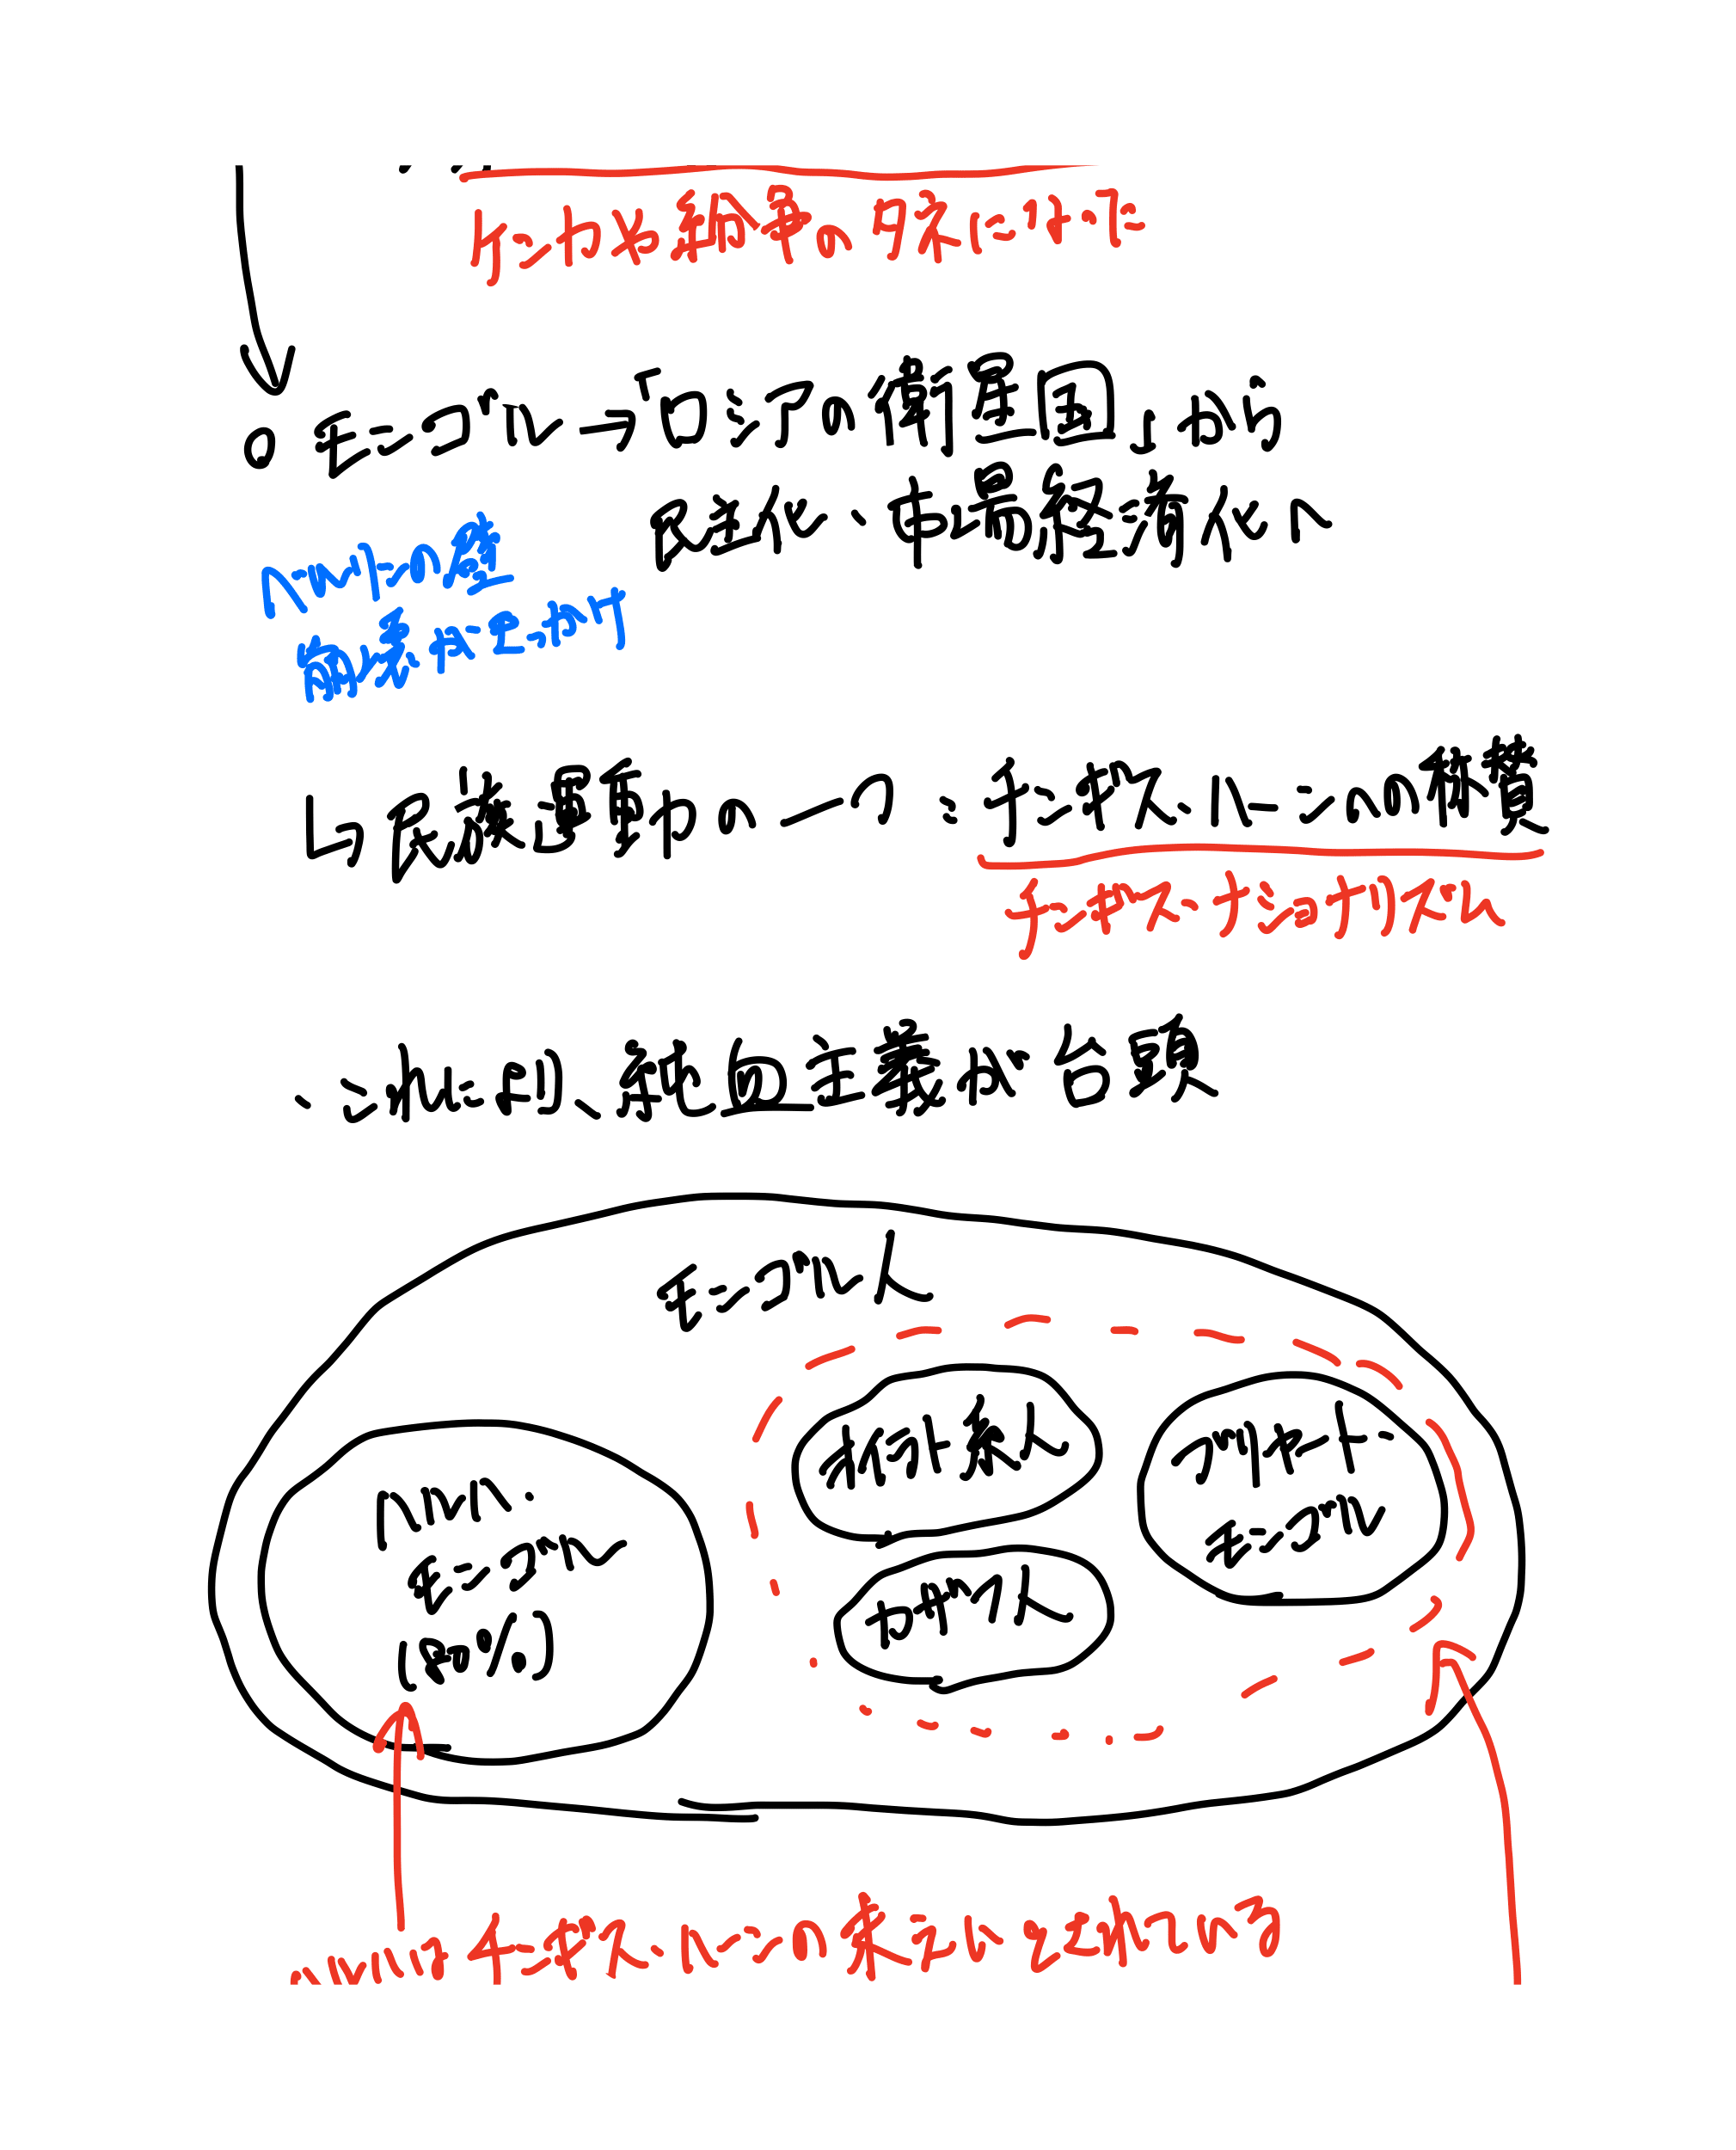 ケンカ女紛争の解決になれに
○モンゴル→「ロシアの衛星国」が
民主化・市場経済化へ
ベルリンの壁
崩壊がきっかけ
↳民族運動の一つ:チンギス・ハーンの称賛
チンギス・ナショナリズム
・これにより、純血主義が台頭
モンゴル人
ハルハ・
モンゴル
(80%)
オイラト系人
カザフ人
ブリヤート
モンゴル
ハルハはチンギス・ハーンの末えいとされている